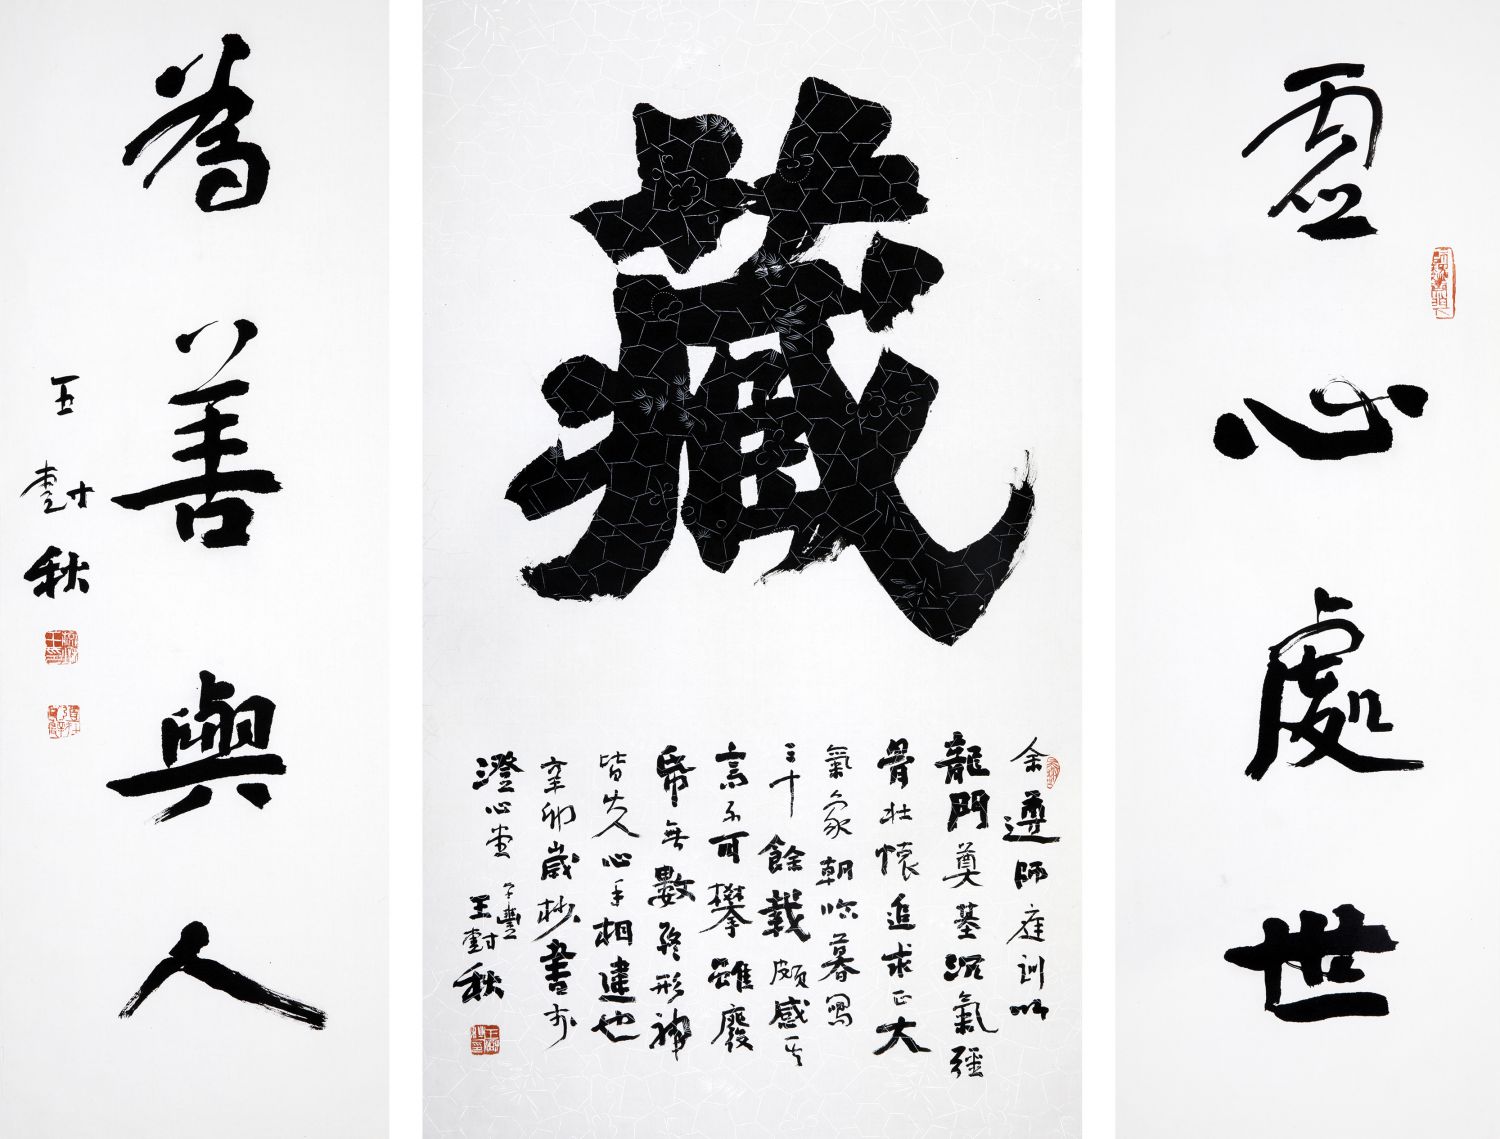 虛心處世
藏
余遵師庭訓以
龍門奠基沉氣強
骨壯懷追求正大
氣象朝臨暮寫
三十餘載頗感其
高不可攀雖廢
帋無數終形神
皆失人心手相違也
辛卯歲杪書於
澄心堂子豐
王尌秋
為善與人
王尌秋